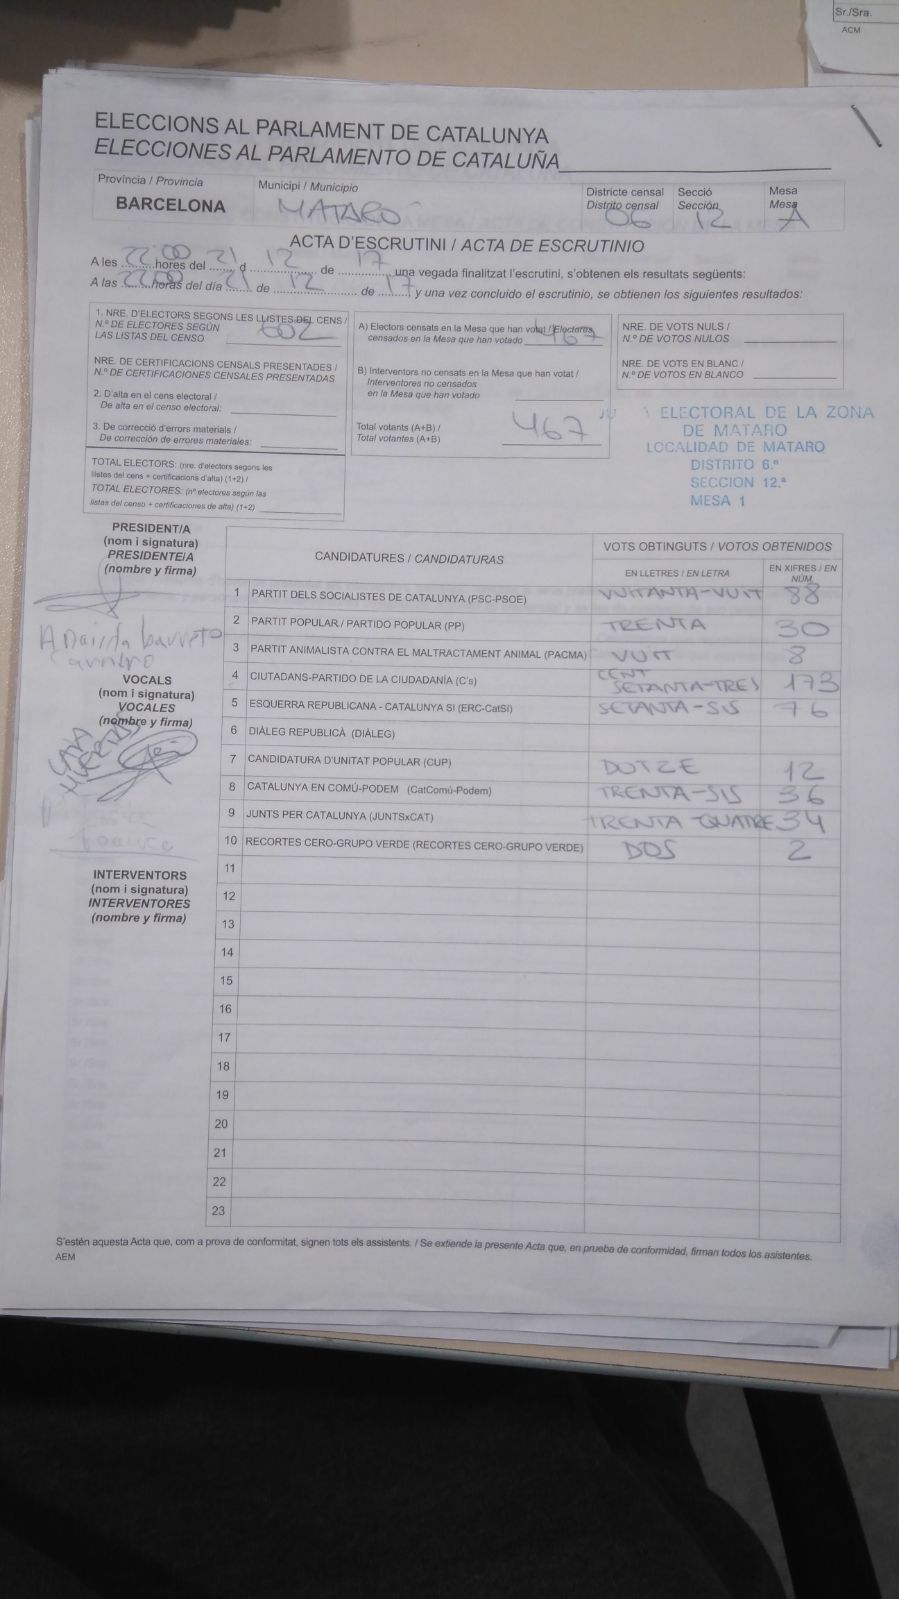 Sr./Sra.
ACM
ELECCIONS AL PARLAMENT DE CATALUNYA
ELECCIONES AL PARLAMENTO DE CATALUÑA
Província / Provincia
BARCELONA
Municipi / Municipio
MATARÓ
Districte censal
Distrito censal
06
Secció
Sección
12
Mesa
Mesa
A
ACTA D'ESCRUTINI / ACTA DE ESCRUTINIO
A les 22:00 hores del 21 d 12 de 17 una vegada finalitzat l'escrutini, s'obtenen els resultats següents:
A las 22:00 horas del día 21 de 12 de 17 y una vez concluido el escrutinio, se obtienen los siguientes resultados:
1. NRE. D'ELECTORS SEGONS LES LLISTES DEL CENS /
N.º DE ELECTORES SEGÚN
LAS LISTAS DEL CENSO 602
NRE. DE CERTIFICACIONS CENSALS PRESENTADES /
N.º DE CERTIFICACIONES CENSALES PRESENTADAS
2. D'alta en el cens electoral /
De alta en el censo electoral:
3. De correcció d'errors materials /
De corrección de errores materiales:
TOTAL ELECTORS: (nre. d'electors segons les
llistes del cens + certificacions d'alta) (1+2) /
TOTAL ELECTORES: (nº electores según las
listas del censo + certificaciones de alta) (1+2)
A) Electors censats en la Mesa que han votat / Electores
censados en la Mesa que han votado 467
B) Interventors no censats en la Mesa que han votat /
Interventores no censados
en la Mesa que han votado
Total votants (A+B) /
Total votantes (A+B) 467
NRE. DE VOTS NULS /
N.º DE VOTOS NULOS
NRE. DE VOTS EN BLANC /
N.º DE VOTOS EN BLANCO
ELECTORAL DE LA ZONA
DE MATARO
LOCALIDAD DE MATARO
DISTRITO 6.º
SECCION 12.ª
MESA 1
PRESIDENT/A
(nom i signatura)
PRESIDENTE/A
(nombre y firma)
barreto
VOCALS
(nom i signatura)
VOCALES
(nombre y firma)
INTERVENTORS
(nom i signatura)
INTERVENTORES
(nombre y firma)
CANDIDATURES / CANDIDATURAS
VOTS OBTINGUTS / VOTOS OBTENIDOS
EN LLETRES / EN LETRA
EN XIFRES / EN NÚM.
1 PARTIT DELS SOCIALISTES DE CATALUNYA (PSC-PSOE) VUITANTA-VUIT 88
2 PARTIT POPULAR / PARTIDO POPULAR (PP) TRENTA 30
3 PARTIT ANIMALISTA CONTRA EL MALTRACTAMENT ANIMAL (PACMA) VUIT 8
4 CIUTADANS-PARTIDO DE LA CIUDADANÍA (C's) CENT SETANTA-TRES 173
5 ESQUERRA REPUBLICANA - CATALUNYA SI (ERC-CatSí) SETANTA-SIS 76
6 DIÀLEG REPUBLICÀ (DIÀLEG)
7 CANDIDATURA D'UNITAT POPULAR (CUP) DOTZE 12
8 CATALUNYA EN COMÚ-PODEM (CatComú-Podem) TRENTA-SIS 36
9 JUNTS PER CATALUNYA (JUNTSxCAT) TRENTA QUATRE 34
10 RECORTES CERO-GRUPO VERDE (RECORTES CERO-GRUPO VERDE) DOS 2
11
12
13
14
15
16
17
18
19
20
21
22
23
S'estén aquesta Acta que, com a prova de conformitat, signen tots els assistents. / Se extiende la presente Acta que, en prueba de conformidad, firman todos los asistentes.
AEM